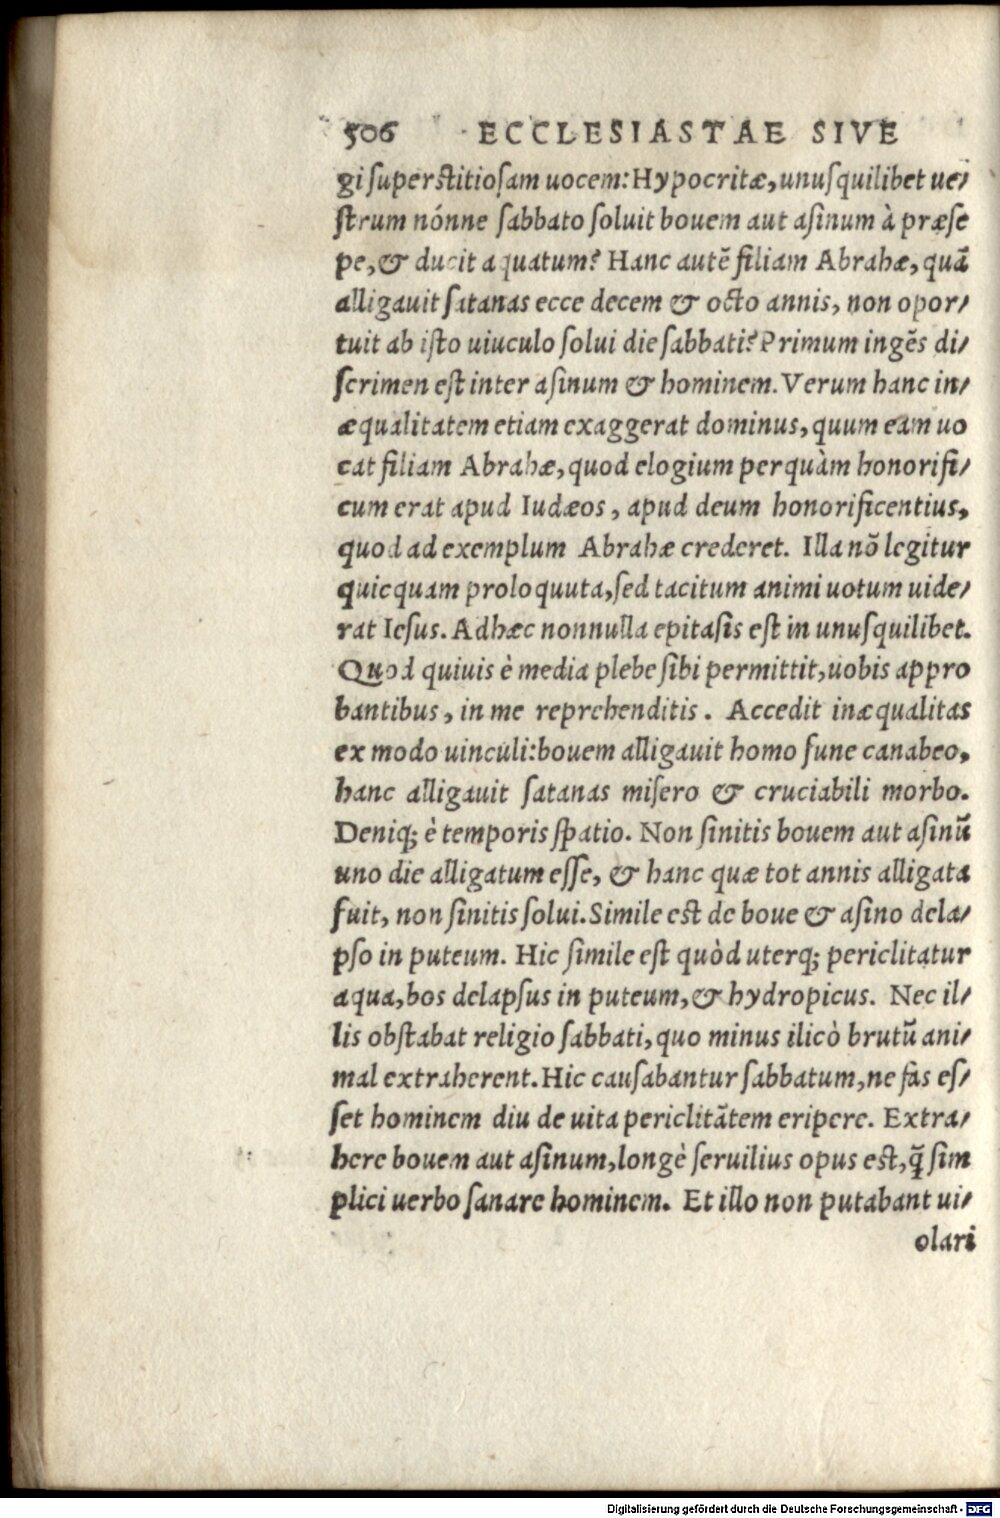 506 ECCLESIASTAE SIVE
gi superstitiosam uocem: Hypocritæ, unusquilibet ue/
strum nónne sabbato soluit bouem aut asinum à præse
pe, & ducit aquatum? Hanc autẽ filiam Abrahæ, quã
alligauit satanas ecce decem & octo annis, non opor/
tuit ab isto uiuculo solui die sabbati? Primum ingẽs di/
scrimen est inter asinum & hominem. Verum hanc in/
æqualitatem etiam exaggerat dominus, quum eam uo
cat filiam Abrahæ, quod elogium perquàm honorifi/
cum erat apud Iudæos, apud deum honorificentius,
quod ad exemplum Abrahæ crederet. Illa nõ legitur
quicquam proloquuta, sed tacitum animi uotum uide/
rat Iesus. Adhæc nonnulla epitasis est in unusquilibet.
Quod quiuis è media plebe sibi permittit, uobis appro
bantibus, in me reprehenditis. Accedit inæqualitas
ex modo uinculi: bouem alligauit homo fune canabeo,
hanc alligauit satanas misero & cruciabili morbo.
Deniq; è temporis spatio. Non sinitis bouem aut asinũ
uno die alligatum esse, & hanc quæ tot annis alligata
fuit, non sinitis solui. Simile est de boue & asino dela/
pso in puteum. Hic simile est quòd uterq; periclitatur
aqua, bos delapsus in puteum, & hydropicus. Nec il/
lis obstabat religio sabbati, quo minus ilicò brutũ ani/
mal extraherent. Hic causabantur sabbatum, ne fas es/
set hominem diu de uita periclitãtem eripere. Extra/
here bouem aut asinum, longè seruilius opus est, q̃ sim
plici uerbo sanare hominem. Et illo non putabant ui/
olari
Digitalisierung gefördert durch die Deutsche Forschungsgemeinschaft - DFG